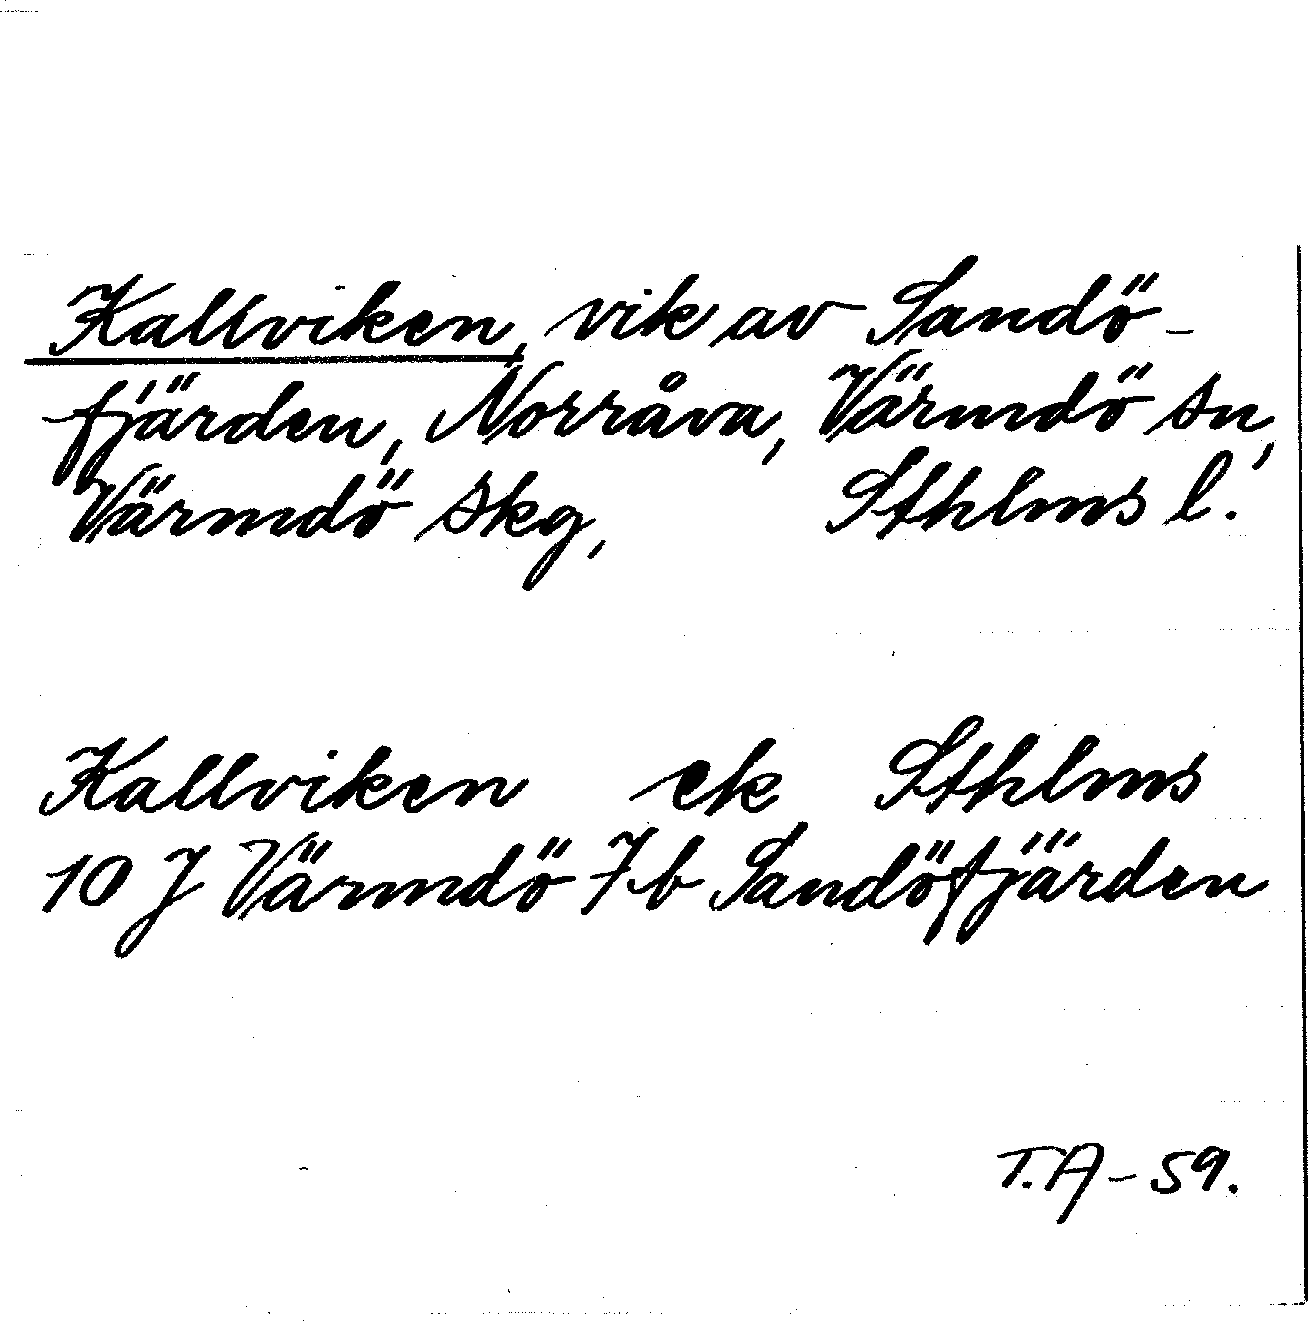 Kallviken, vik av Sandö-
fjärden, Norråva, Värmdö sn,
Värmdö skg, Sthlms l.
Kallviken ek Sthlms
10 J Värmdö 7b Sandöfjärden
T.A-59.